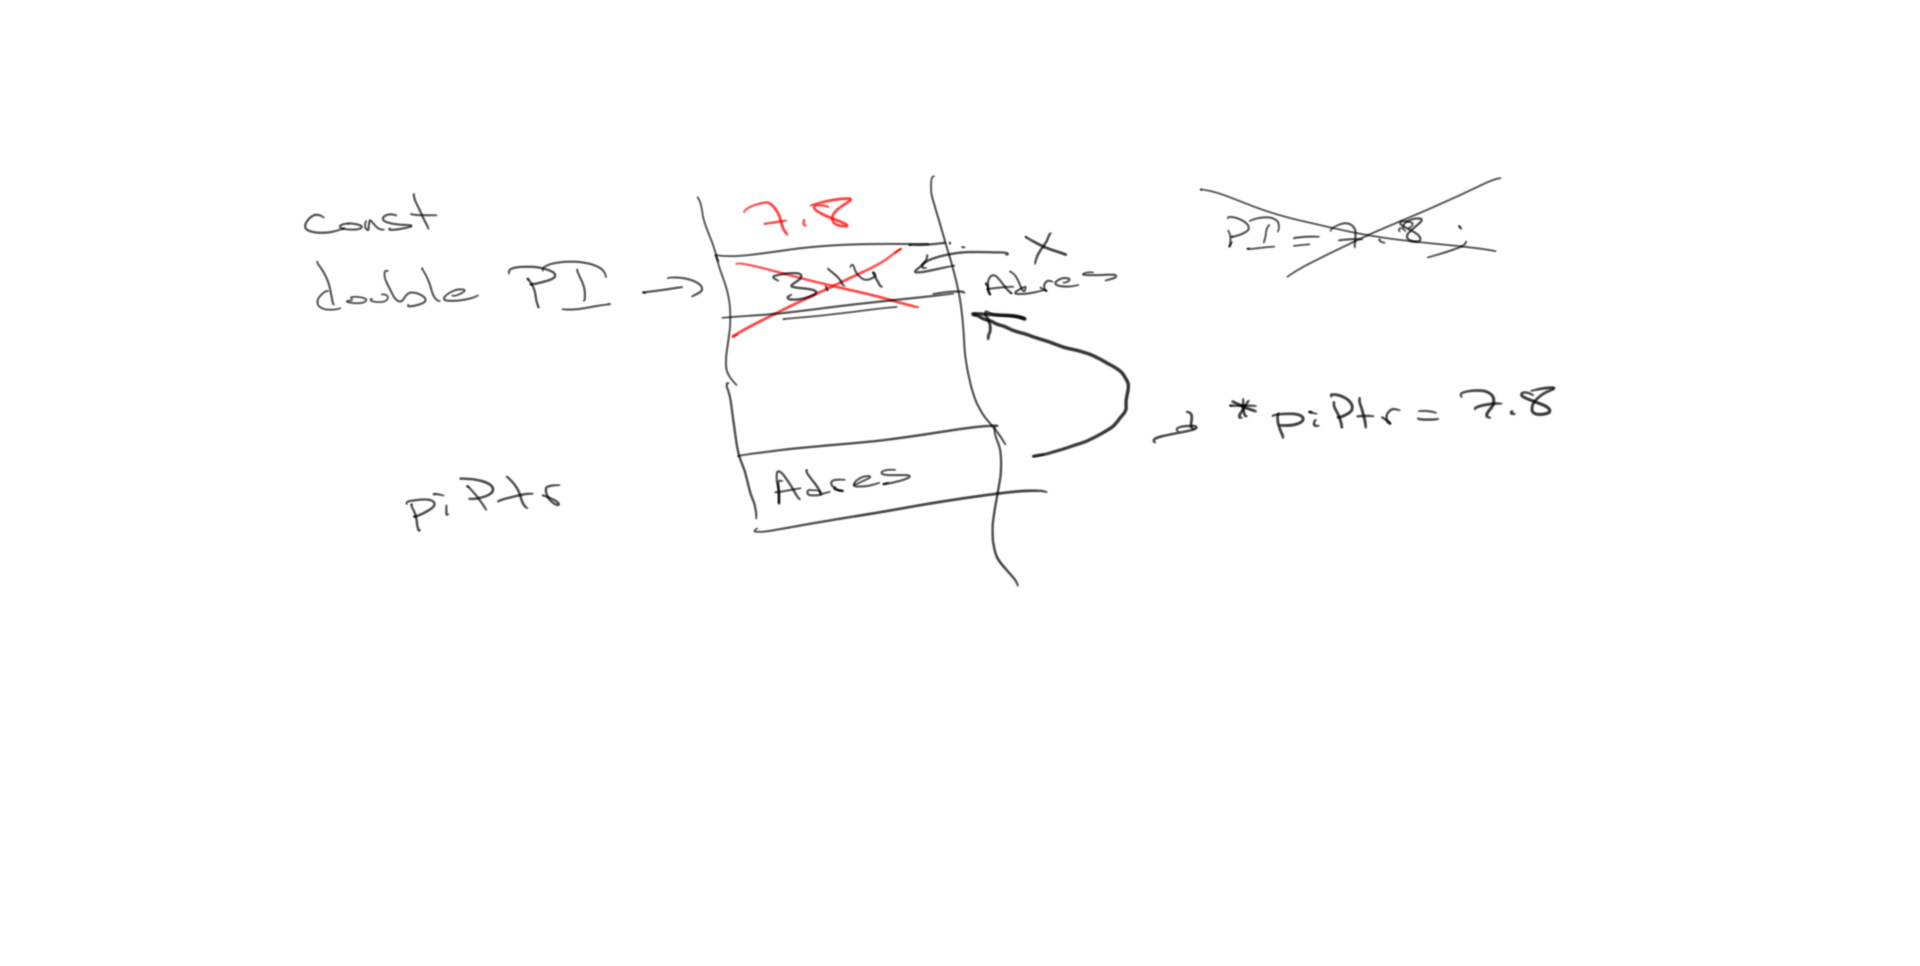 const
double PI →
7.8
3.14
X
Adres
PI = 7.8;
→ *piPtr = 7.8
piPtr
Adres